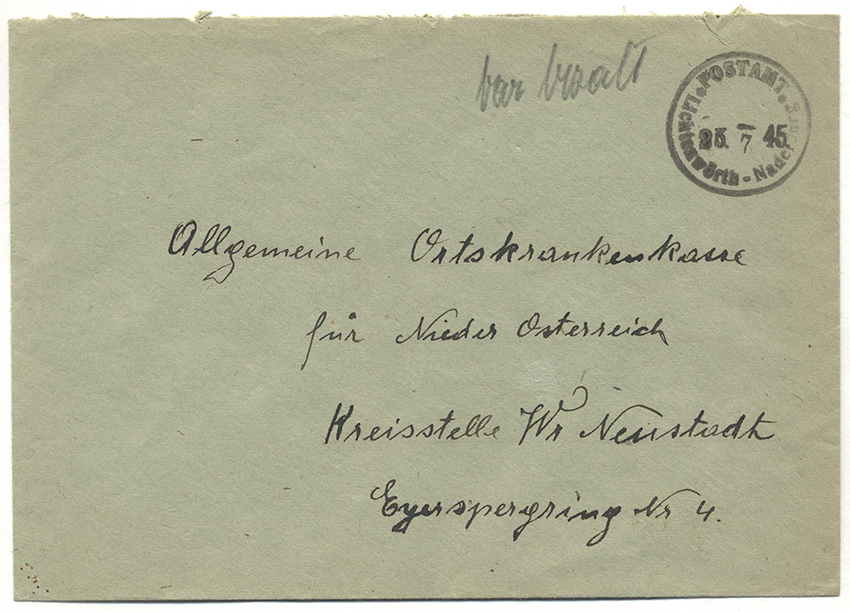 bar bezalt
POSTAMT
Lichtenwörth-Nadelburg
25. 7 45
Allgemeine Ortskrankenkasse
für Nieder Österreich
Kreisstelle Wr Neustadt
Eyerspergring Nr 4.